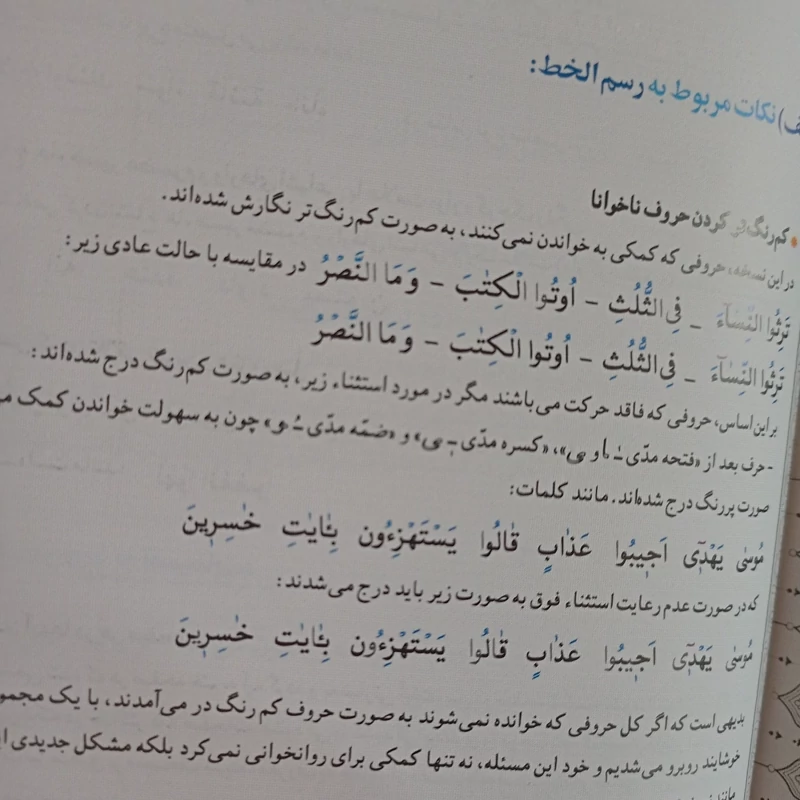 نکات مربوط به رسم الخط:
• کم‌رنگ‌تر کردن حروف ناخوانا
در این نسخه، حروفی که کمکی به خواندن نمی‌کنند، به صورت کم‌رنگ‌تر نگارش شده‌اند.
تَرِثُوا النِّسٰٓاءَ – فِی الثُّلُثِ – اُوتُوا الْکِتٰبَ – وَ مَا النَّصْرُ در مقایسه با حالت عادی زیر:
تَرِثُوا النِّسٰٓاءَ – فِی الثُّلُثِ – اُوتُوا الْکِتٰبَ – وَ مَا النَّصْرُ
بر این اساس، حروفی که فاقد حرکت می‌باشند مگر در مورد استثناء زیر، به صورت کم‌رنگ درج شده‌اند:
- حرف بعد از «فتحه مدّی ـَ ا و ی»، «کسره مدّی ـِ ی» و «ضمّه مدّی ـُ و» چون به سهولت خواندن کمک
صورت پررنگ درج شده‌اند. مانند کلمات:
مُوسٰی یَهْدٖٓی اَجٖیبُوا عَذٰابٍ قٰالُوا یَسْتَهْزِءُون بِـَٔایٰاتِ خٰسِرٖینَ
که در صورت عدم رعایت استثناء فوق به صورت زیر باید درج می‌شدند:
مُوسٰی یَهْدٖٓی اَجٖیبُوا عَذٰابٍ قٰالُوا یَسْتَهْزِءُون بِـَٔایٰاتِ خٰسِرٖینَ
بدیهی است که اگر کل حروفی که خوانده نمی‌شوند به صورت حروف کم رنگ در می‌آمدند، با یک
خوشایند روبرو می‌شدیم و خود این مسئله، نه تنها کمکی برای روانخوانی نمی‌کرد بلکه مشکل جدیدی